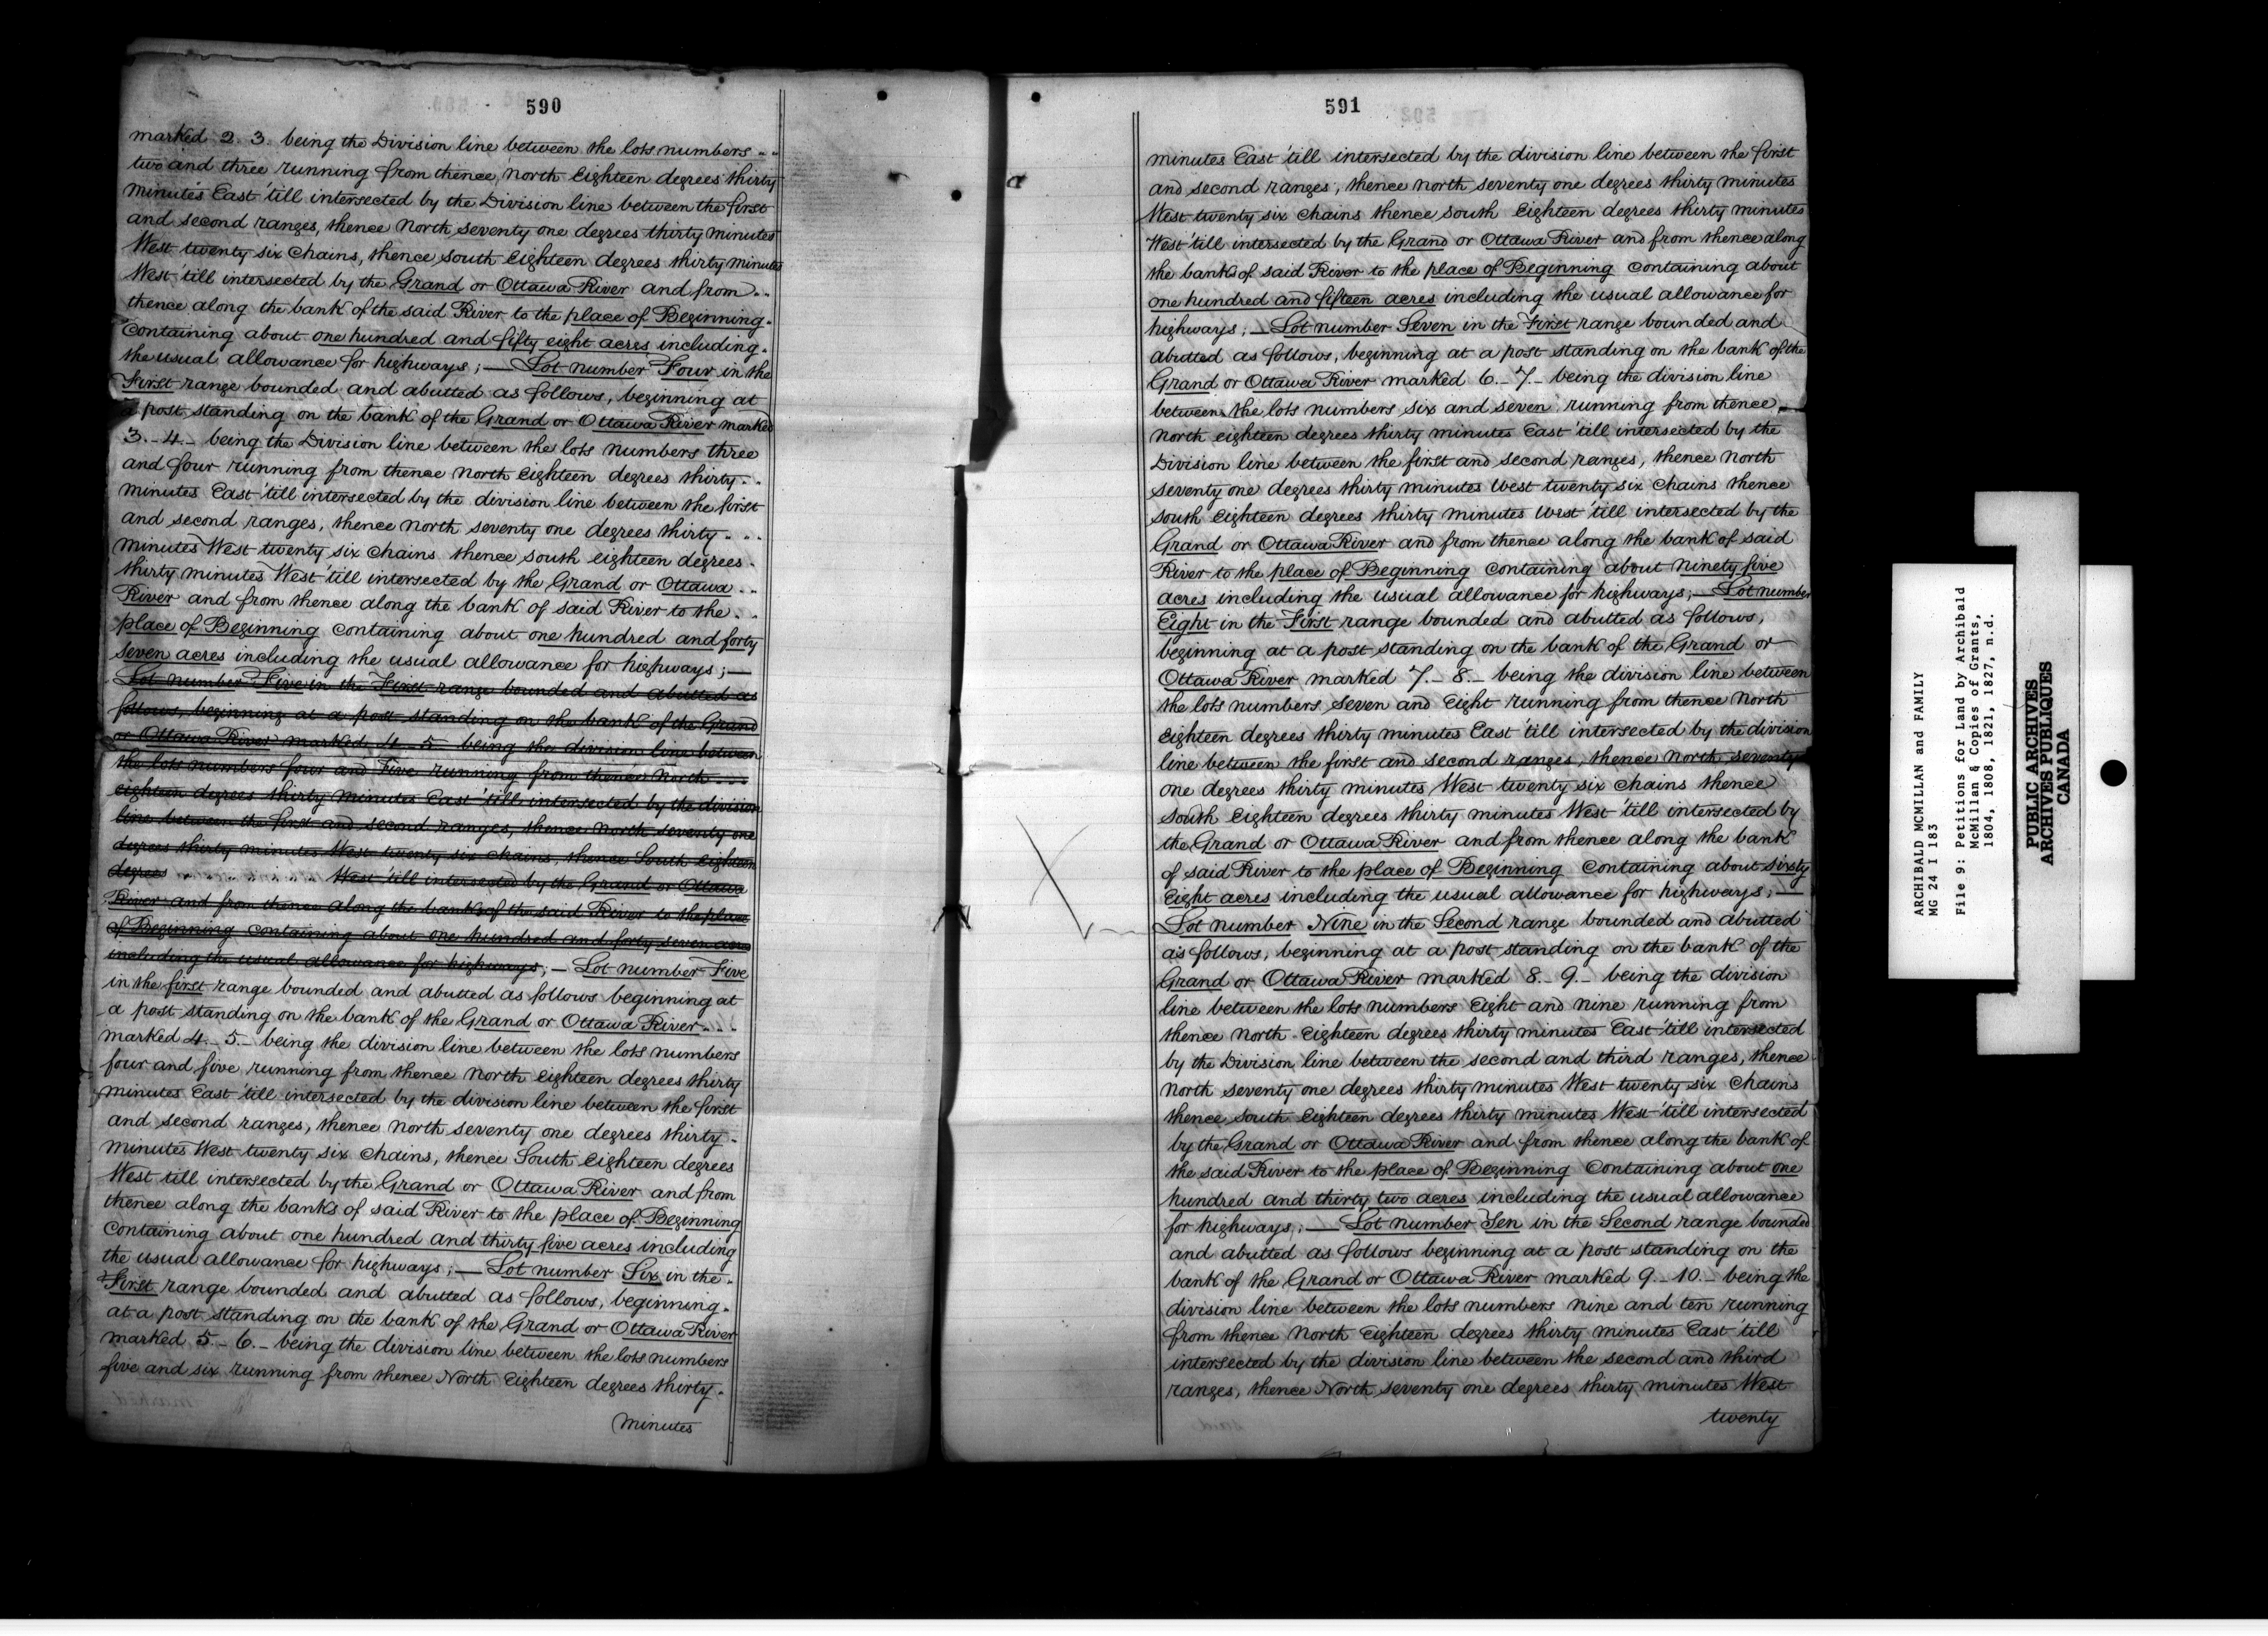 590
marked 2. 3. being the Division line between the lots numbers . .
two and three running from thence north Eighteen degrees thirty
minutes East 'till intersected by the Division line between the first
and second ranges, thence North seventy one degrees thirty minutes
West twenty six Chains, thence south Eighteen degrees thirty minutes
West 'till intersected by the Grand or Ottawa River and from . .
thence along the bank of the said River to the place of Beginning.
Containing about one hundred and fifty eight acres including.
the usual allowance for highways ; — Lot number Four in the
First range bounded and abutted as follows, beginning at
a post standing on the bank of the Grand or Ottawa River marked
3. - 4. - being the Division line between the lots numbers three
and four running from thence North Eighteen degrees thirty . .
minutes East 'till intersected by the division line between the first
and second ranges, thence north seventy one degrees thirty . . .
minutes West twenty six Chains thence south eighteen degrees .
thirty minutes West 'till intersected by the Grand or Ottawa . .
River and from thence along the bank of said River to the . .
place of Beginning Containing about one hundred and forty
seven acres including the usual allowance for highways ; —
Lot number Five in the First range bounded and abutted as
follows, beginning at a post standing on the bank of the Grand
or Ottawa River marked 4 - 5 - being the division line between
the lots numbers four and Five running from thence North . . .
eighteen degrees thirty Minutes East 'till intersected by the division
line between the first and second ranges, thence North seventy one
degrees thirty minutes West twenty six chains, thence South eighteen
degrees West 'till intersected by the Grand or Ottawa
River and from thence along the banks of the said River to the place
of Beginning containing about one hundred and forty seven acres
including the usual allowance for highways ; — Lot number Five
in the first range bounded and abutted as follows beginning at
a post standing on the bank of the Grand or Ottawa River . . .
marked 4. - 5. - being the division line between the lots numbers
four and five running from thence North eighteen degrees thirty
minutes East 'till intersected by the division line between the first
and second ranges, thence north seventy one degrees thirty .
minutes West twenty six Chains, thence South Eighteen degrees
West till intersected by the Grand or Ottawa River and from
thence along the banks of said River to the place of Beginning
Containing about one hundred and thirty five acres including
the usual allowance for highways ; — Lot number Six in the .
First range bounded and abutted as follows, beginning.
at a post standing on the bank of the Grand or Ottawa River
marked 5 - 6. - being the division line between the lots numbers
five and six running from thence North Eighteen degrees thirty .
minutes
591
minutes East 'till intersected by the division line between the first
and second ranges, thence north seventy one degrees thirty minutes
West twenty six Chains thence south Eighteen degrees thirty minutes
West 'till intersected by the Grand or Ottawa River and from thence along
the banks of said River to the place of Beginning Containing about
one hundred and fifteen acres including the usual allowance for
highways ; — Lot number Seven in the First range bounded and
abutted as follows, beginning at a post standing on the bank of the
Grand or Ottawa River marked 6. - 7. - being the division line
between the lots numbers six and seven running from thence —
North eighteen degrees thirty minutes East 'till intersected by the
Division line between the first and second ranges, thence North
seventy one degrees thirty minutes West twenty six Chains thence
south Eighteen degrees thirty minutes West 'till intersected by the
Grand or Ottawa River and from thence along the bank of said
River to the place of Beginning Containing about ninety five
acres including the usual allowance for highways ; — Lot number
Eight in the First range bounded and abutted as follows,
beginning at a post standing on the bank of the Grand or
Ottawa River marked 7. - 8. - being the division line between
the lots numbers seven and Eight running from thence North
Eighteen degrees thirty minutes East 'till intersected by the division
line between the first and second ranges, thence North seventy
one degrees thirty minutes West twenty six Chains thence
South Eighteen degrees thirty minutes West 'till intersected by
the Grand or Ottawa River and from thence along the bank
of said River to the place of Beginning Containing about sixty
Eight acres including the usual allowance for highways ; —
Lot number Nine in the Second range bounded and abutted
as follows, beginning at a post standing on the bank of the
Grand or Ottawa River marked 8. - 9. - being the division
line between the lots numbers Eight and nine running from
thence North Eighteen degrees thirty minutes East 'till intersected
by the Division line between the second and third ranges, thence
North seventy one degrees thirty minutes West twenty six Chains
thence South Eighteen degrees thirty minutes West 'till intersected
by the Grand or Ottawa River and from thence along the bank of
the said River to the place of Beginning Containing about one
hundred and thirty two acres including the usual allowance
for highways ; — Lot number Ten in the Second range bounded
and abutted as follows beginning at a post standing on the
bank of the Grand or Ottawa River marked 9 - 10. - being the
division line between the lots numbers nine and ten running
from thence North Eighteen degrees thirty minutes East 'till
intersected by the division line between the second and third
ranges, thence North seventy one degrees thirty minutes West
twenty
ARCHIBALD MCMILLAN and FAMILY
MG 24 I 183
File 9: Petitions for Land by Archibald
McMillan & Copies of Grants,
1804, 1808, 1821, 1827, n.d.
PUBLIC ARCHIVES
ARCHIVES PUBLIQUES
CANADA